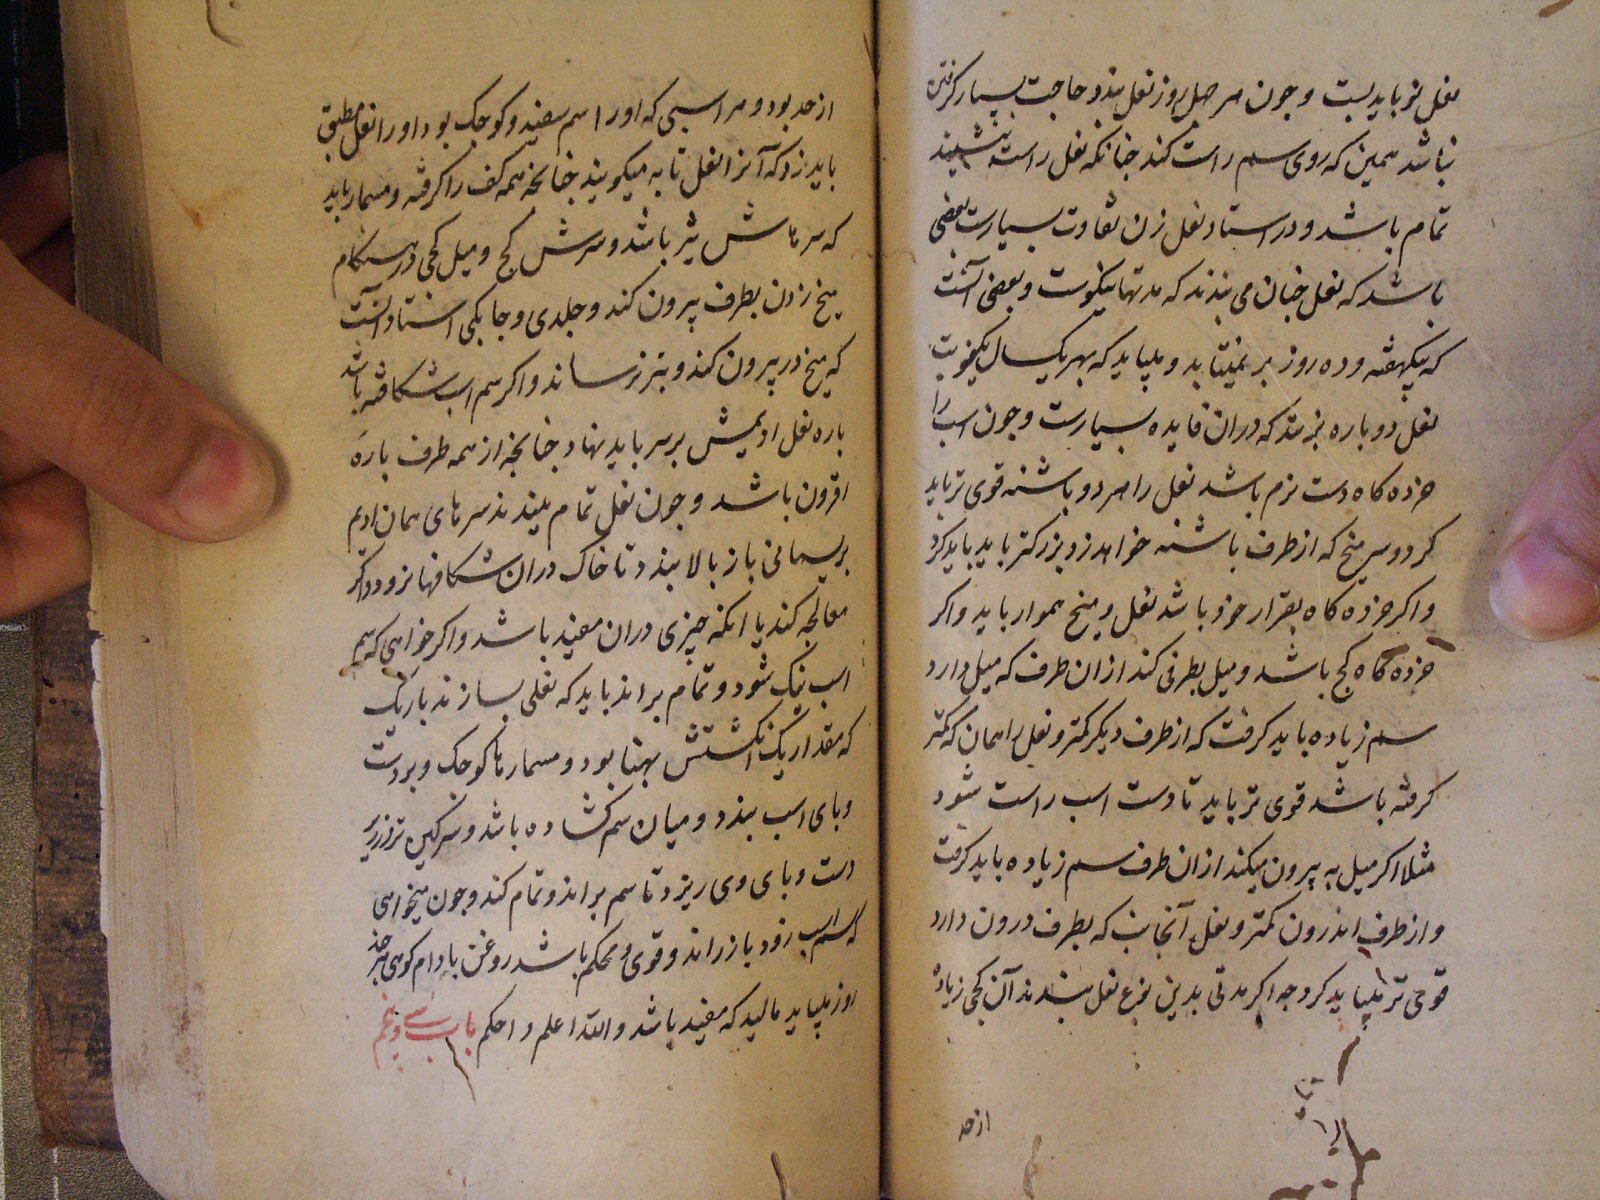 نعل نو باید بست و چون هر چهل روز نعل بندد حاجت بسیار گرفتن
نباشد همین که روی سم راست کند چنانکه نعل راست بنشیند
تمام باشد و در استاد نعل زن تفاوت بسیارست بعضی
باشد که نعل چنان می بندند که مدتها نیکوست و بعضی آنست
که یکهفته و ده روز بر نمیتابد و میباید که بهر یکسال یکنوبت
نعل دوباره بزنند که دران فایده بسیارست و چون اسب را
خرده کاه دست نرم باشد نعل را هر دو پاشنه قوی تر باید
کرد و سر میخ که از طرف پاشنه خواهد زد بزرکتر باید باید کرد
و اکر خرده کاه بقرار خود باشد نعل و میخ هموار باید و اکر
خرده کاه کج باشد و میل بطرفی کند ازان طرف که میل دارد
سم زیاده باید کرفت که از طرف دیکر کمتر و نعل را همان که کمتر
کرفته باشد قوی تر باید تا دست اسب راست شود
مثلا اکر میل به بیرون میکند ازان طرف سم زیاده باید کرفت
و از طرف اندرون کمتر و نعل آنجانب که بطرف درون دارد
قوی تر میباید کرد چه اکر مدتی بدین نوع نعل بندند آن کجی زیاده
از حد
از حد بود و هر اسبی که او را سم سفید و کوچک بود او را نعل مطبق
باید زد که آنرا نعل تابه میکویند چنانچه همه کف را کرفته و مسمار باید
که سرهاش تیز باشد و سرش کج و میل کجی در هنکام
میخ زدن بطرف بیرون کند و جلدی و چابکی استاد آنست
که میخ در بیرون کند و بتر نرساند و اکر سم اسب شکافته باشد
پاره نعل ادیمش بر سر باید نهاد چنانچه از همه طرف پاره
افزون باشد و چون نعل تمام ببندند سرهای همان ادیم
بریسمانی باز بالا بندد تا خاک دران شکافها نرود و دکر
معالجه کند یا انکه چیزی دران مفید باشد و اکر خواهی که سم
اسب نیک شود و تمام براند باید که نعلی بسازند باریک
که مقدار یک انکشتش پهنا بود و مسمارها کوچک و بر دست
و پای اسب بندد و میان سم کشاده باشد و سرکین تر در زیر
دست و پای وی ریزد تا سم براند و تمام کند و چون میخواهی
که سم اسب زود باز راند و قوی و محکم باشد روغن بادام کوهی هر چند
روز میباید مالید که مفید باشد والله اعلم و احکم باب سی و پنجم